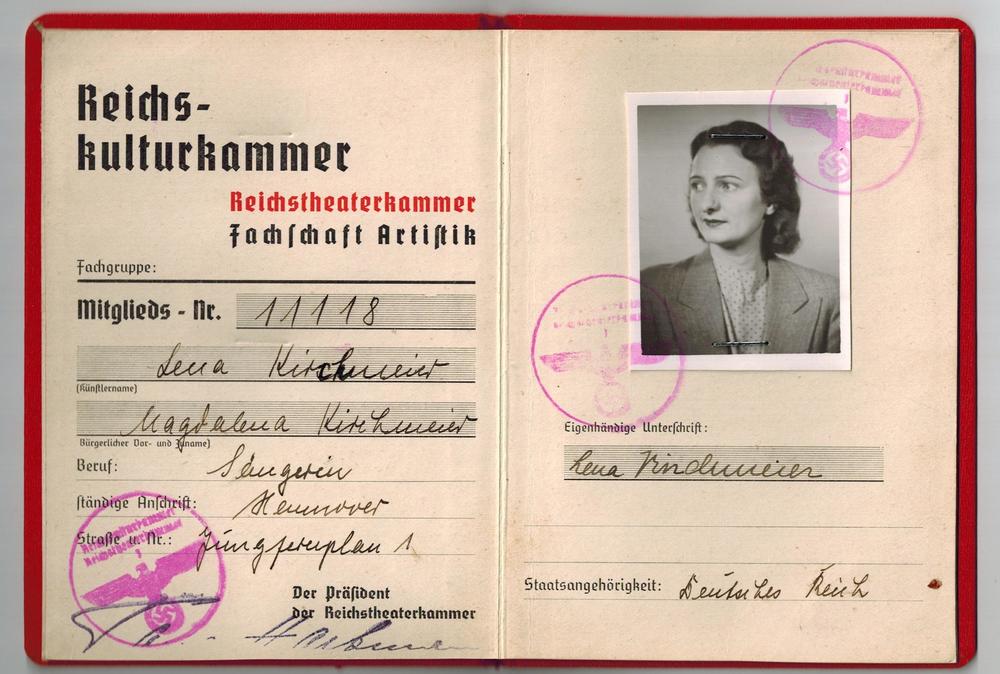 Reichs-
kulturkammer
Reichstheaterkammer
Fachschaft Artistik
Fachgruppe:
Mitglieds - Nr. 11118
Lena Kirchmeier
(Künstlername)
Magdalena Kirchmeier
Bürgerlicher Vor- und Zuname)
Beruf: Sängerin
ständige Anschrift: Hannover
Straße u. Nr.: Jungfernplan 1
Der Präsident
der Reichstheaterkammer
Eigenhändige Unterschrift:
Lena
Staatsangehörigkeit: Deutsches Reich